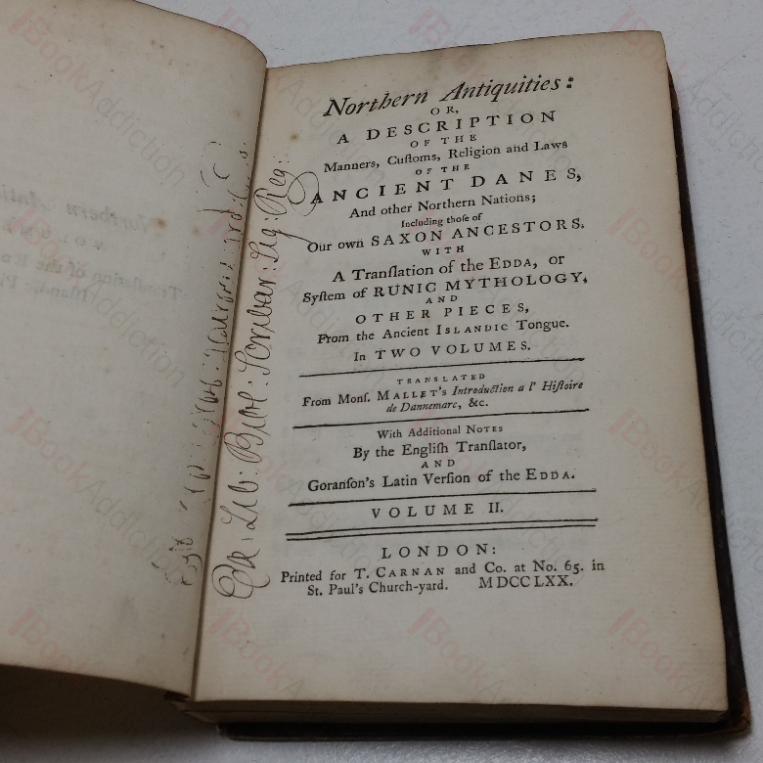 Northern Antiquities:
OR,
A DESCRIPTION
OF THE
Manners, Cuſtoms, Religion and Laws
OF THE
ANCIENT DANES,
And other Northern Nations;
Including thoſe of
Our own SAXON ANCESTORS.
WITH
A Tranſlation of the EDDA, or
Syſtem of RUNIC MYTHOLOGY,
AND
OTHER PIECES,
From the Ancient ISLANDIC Tongue.
In TWO VOLUMES.
TRANSLATED
From Monſ. MALLET's Introduction a l' Hiſtoire
de Dannemarc, &c.
With Additional NOTES
By the Engliſh Tranſlator,
AND
Goranſon's Latin Verſion of the EDDA.
VOLUME II.
LONDON:
Printed for T. CARNAN and Co. at No. 65. in
St. Paul's Church-yard. MDCCLXX.
Ex: Lib:
Reg:
BookAddiction